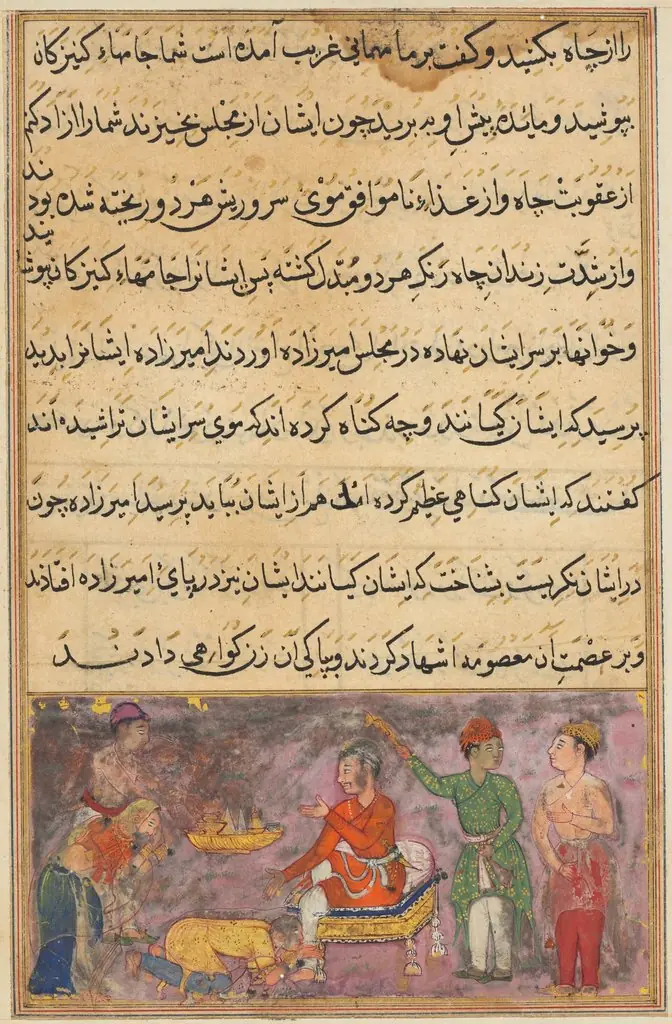 را از چاه بکشید و گفت بر ما مهمانی غریب آمده است شما جامهاء کنیزکان
بپوشید و مائده پیش او به برید چون ایشان از مجلس بخیزند شما را ازاد کنم
از عقوبت چاه و از غذاء ناموافق موی سر و ریش هر دو ریخته شده بود
ند
و از شدّت زندان چاه رنک هر دو مبدّل کشته پس ایشانرا جامهاء کنیزکان پوشا
نید
و خوانها بر سر ایشان نهاده در مجلس امیرزاده اوردند امیرزاده ایشانرا بدید
پرسید که ایشان کیانند و چه کناه کرده اند که موی سر ایشان تراشیده اند
کفتند که ایشان کناهی عظیم کرده اند هم از ایشان بباید پرسید امیرزاده چون
در ایشان نکریست بشناخت که ایشان کیانند ایشان نیز در پای امیرزاده افتادند
و بر عصمت آن معصومه اشهاد کردند و بپاکی آن زن کواهی دادند